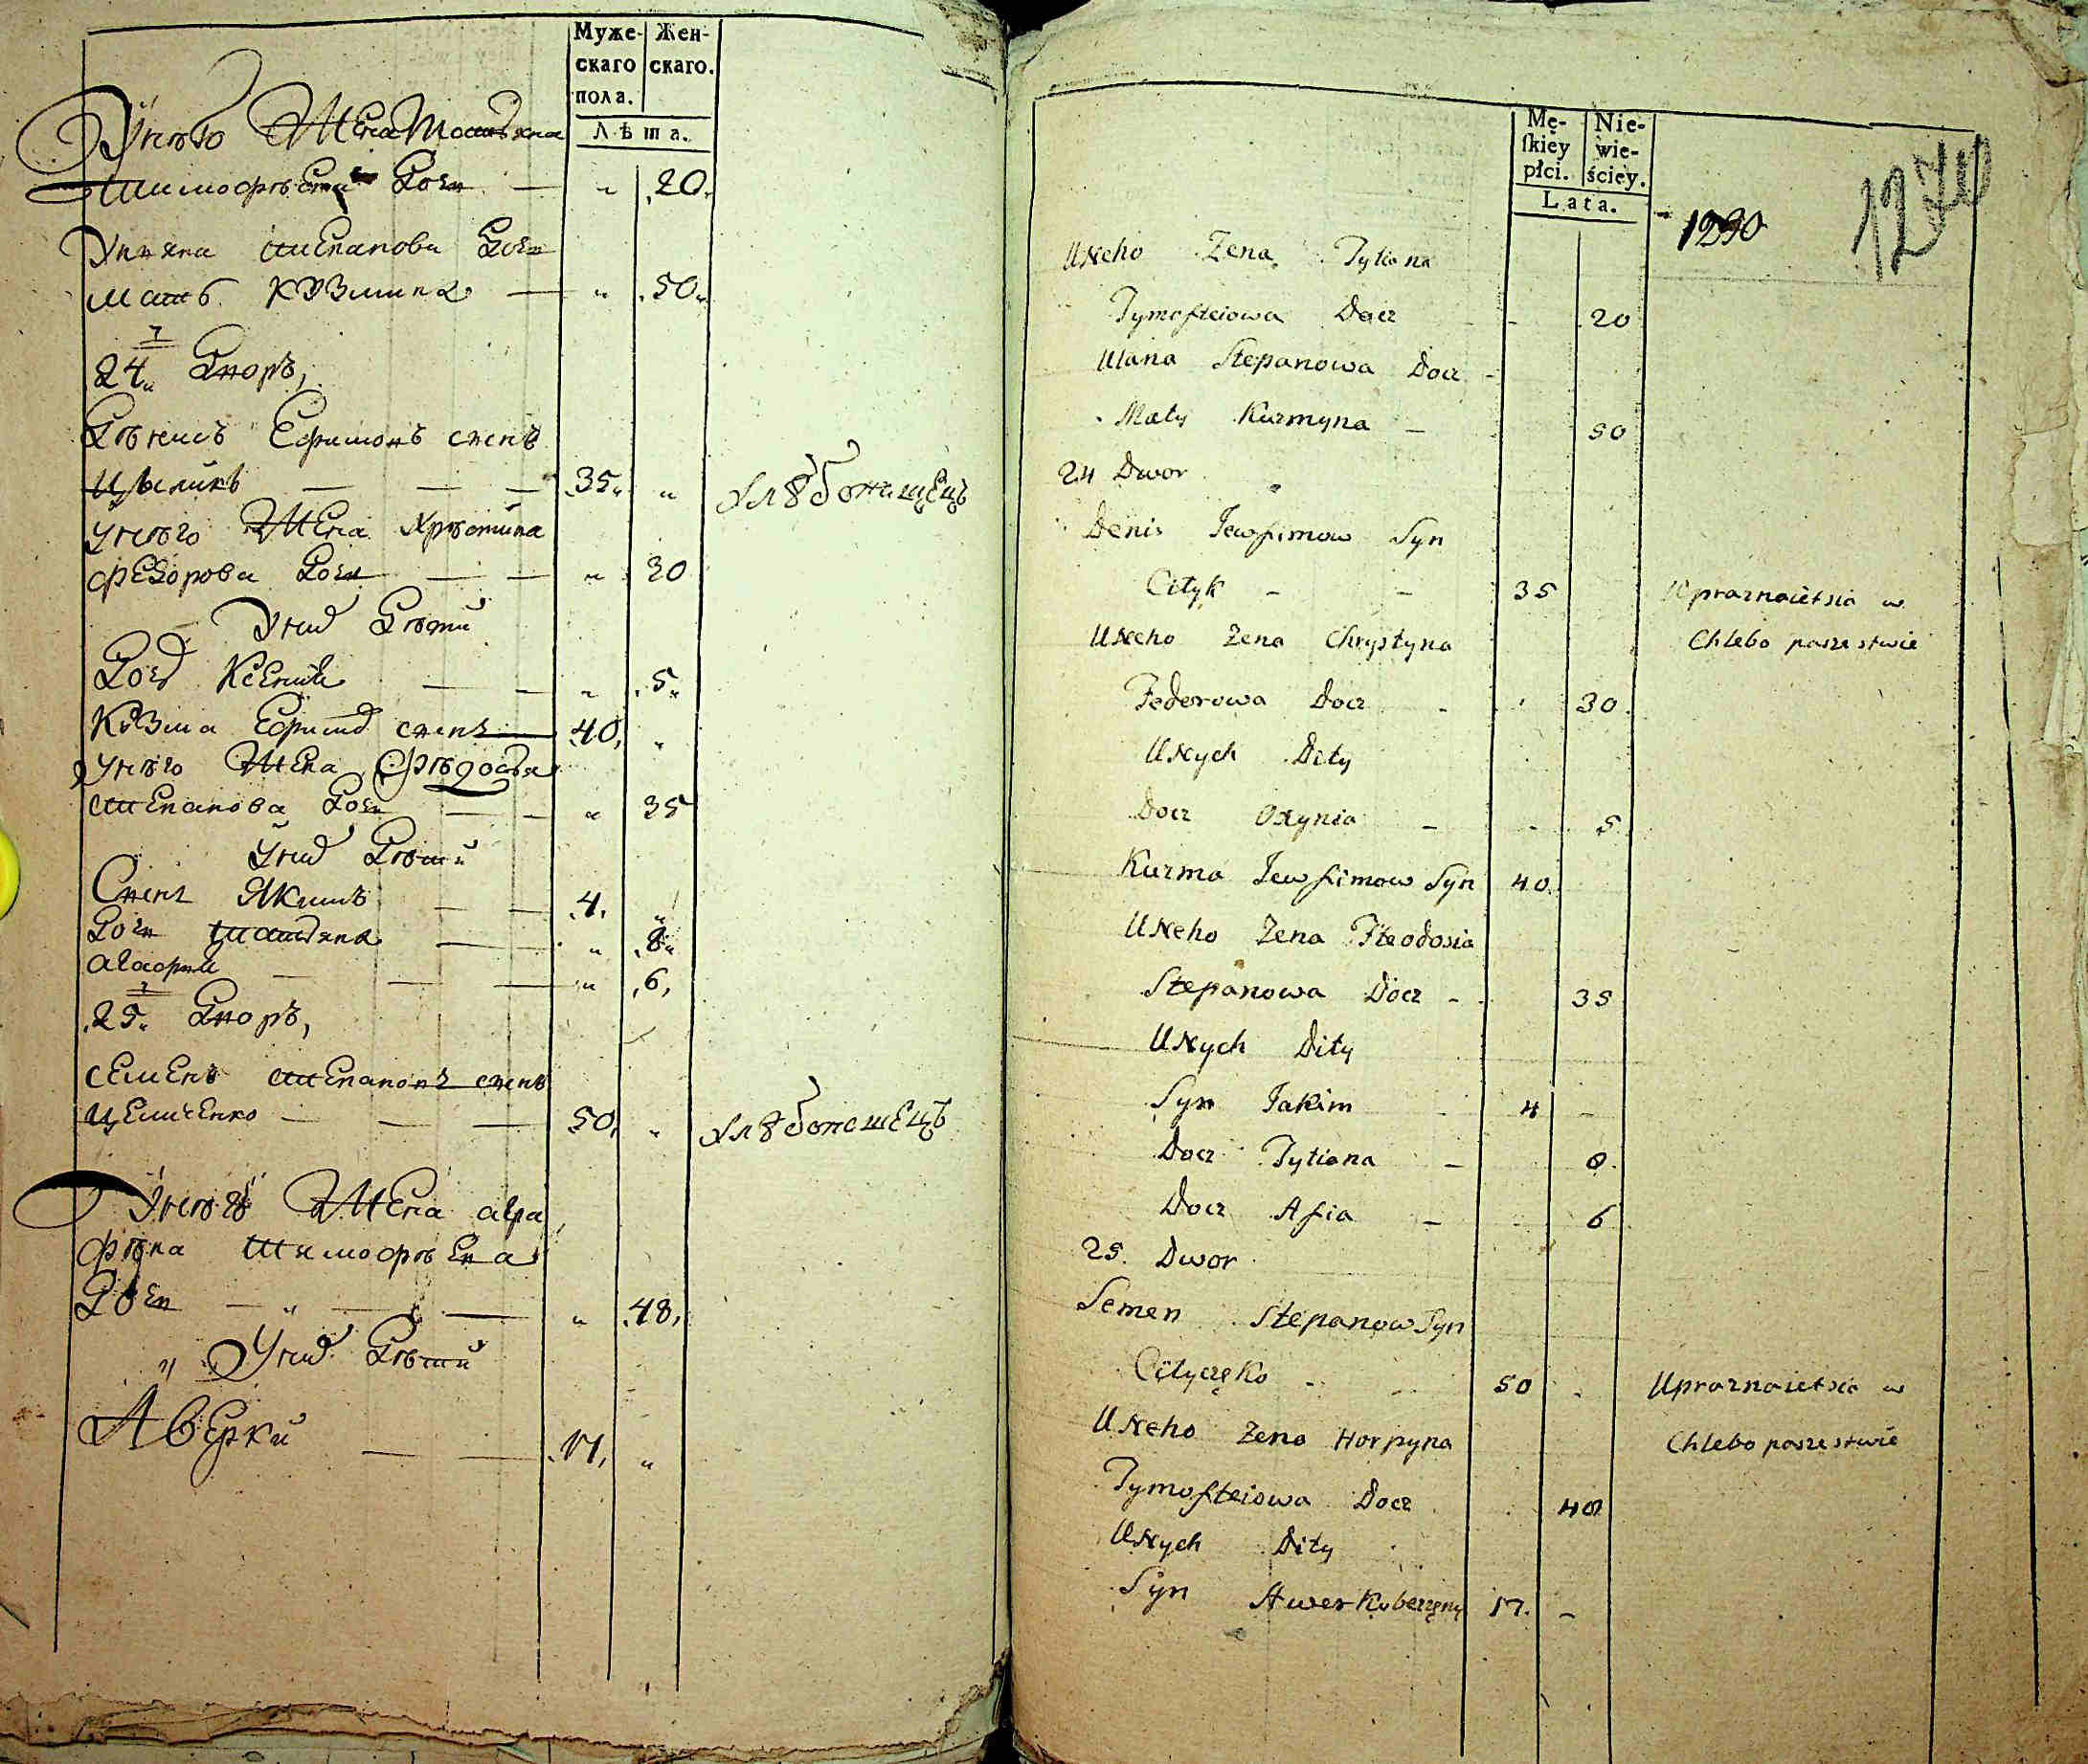 Муже-
скаго
пола.
Жен-
скаго.
Лѣта.
Унѣго Жена Татьяна
Тимофѣева Дочь — „ 20.
Ульяна Степанова Дочь
мать Кузмина — „ 50„
24„ Дворъ,
Дѣнисъ Ефимовъ сынъ
— — — 35„ „ хлѣбопашецъ
унѣго Жена Хрѣстина
Федорова Дочь — — „ 30
Унид Дѣти
Дочь Ксения — — „ 5„
Кузма Ефимов сынъ — 40, „
унѣго Жена Фѣдосья
Степанова Дочь — — „ 35
Унид Дѣти
Сынъ Якимъ — — 4.
Дочь Татьяна — „ 8„
Агафия — — — „ 6,
25„ Дворъ,
Семенъ Степановъ сынъ
— — — 50, „ хлѣбопашецъ
Унѣго Жена агра
фѣна Тимофѣева
Дочь — „ — — „ 48,
„ Унид Дѣти
Аверки — — 17, „
Mę-
skiey
płci.
Nie-
wie-
ściey.
Lata.
1290
UNeho Zena Tytiana
Tymofteiowa Docz - - 20
Ulana Stepanowa Docz -
Maty Kuzmyna - 50
24 Dwor
Denis Jewfimow Syn
Cityk - - 35 Upraznaietsia w
UNeho Zena Chrystyna Chlebo paszestwie
Federowa Docz - 30.
UNych Dity
Docz Oxynia - - 5
Kuzma Jewfimow Syn 40.
UNeho Zena Fteodosia
Stepanowa Docz - 35
UNych Dity
Syn Jakim 4 -
Docz Tytiana - 8.
Docz Afia - 6
25. Dwor
Semen Stepanow Syn
Cityczęko - - 50 - Upraznaietsia w
UNeho Zena Horpyna Chlebo paszestwie
Tymofteiowa Docz 48
UNych Dity
Syn 17. -